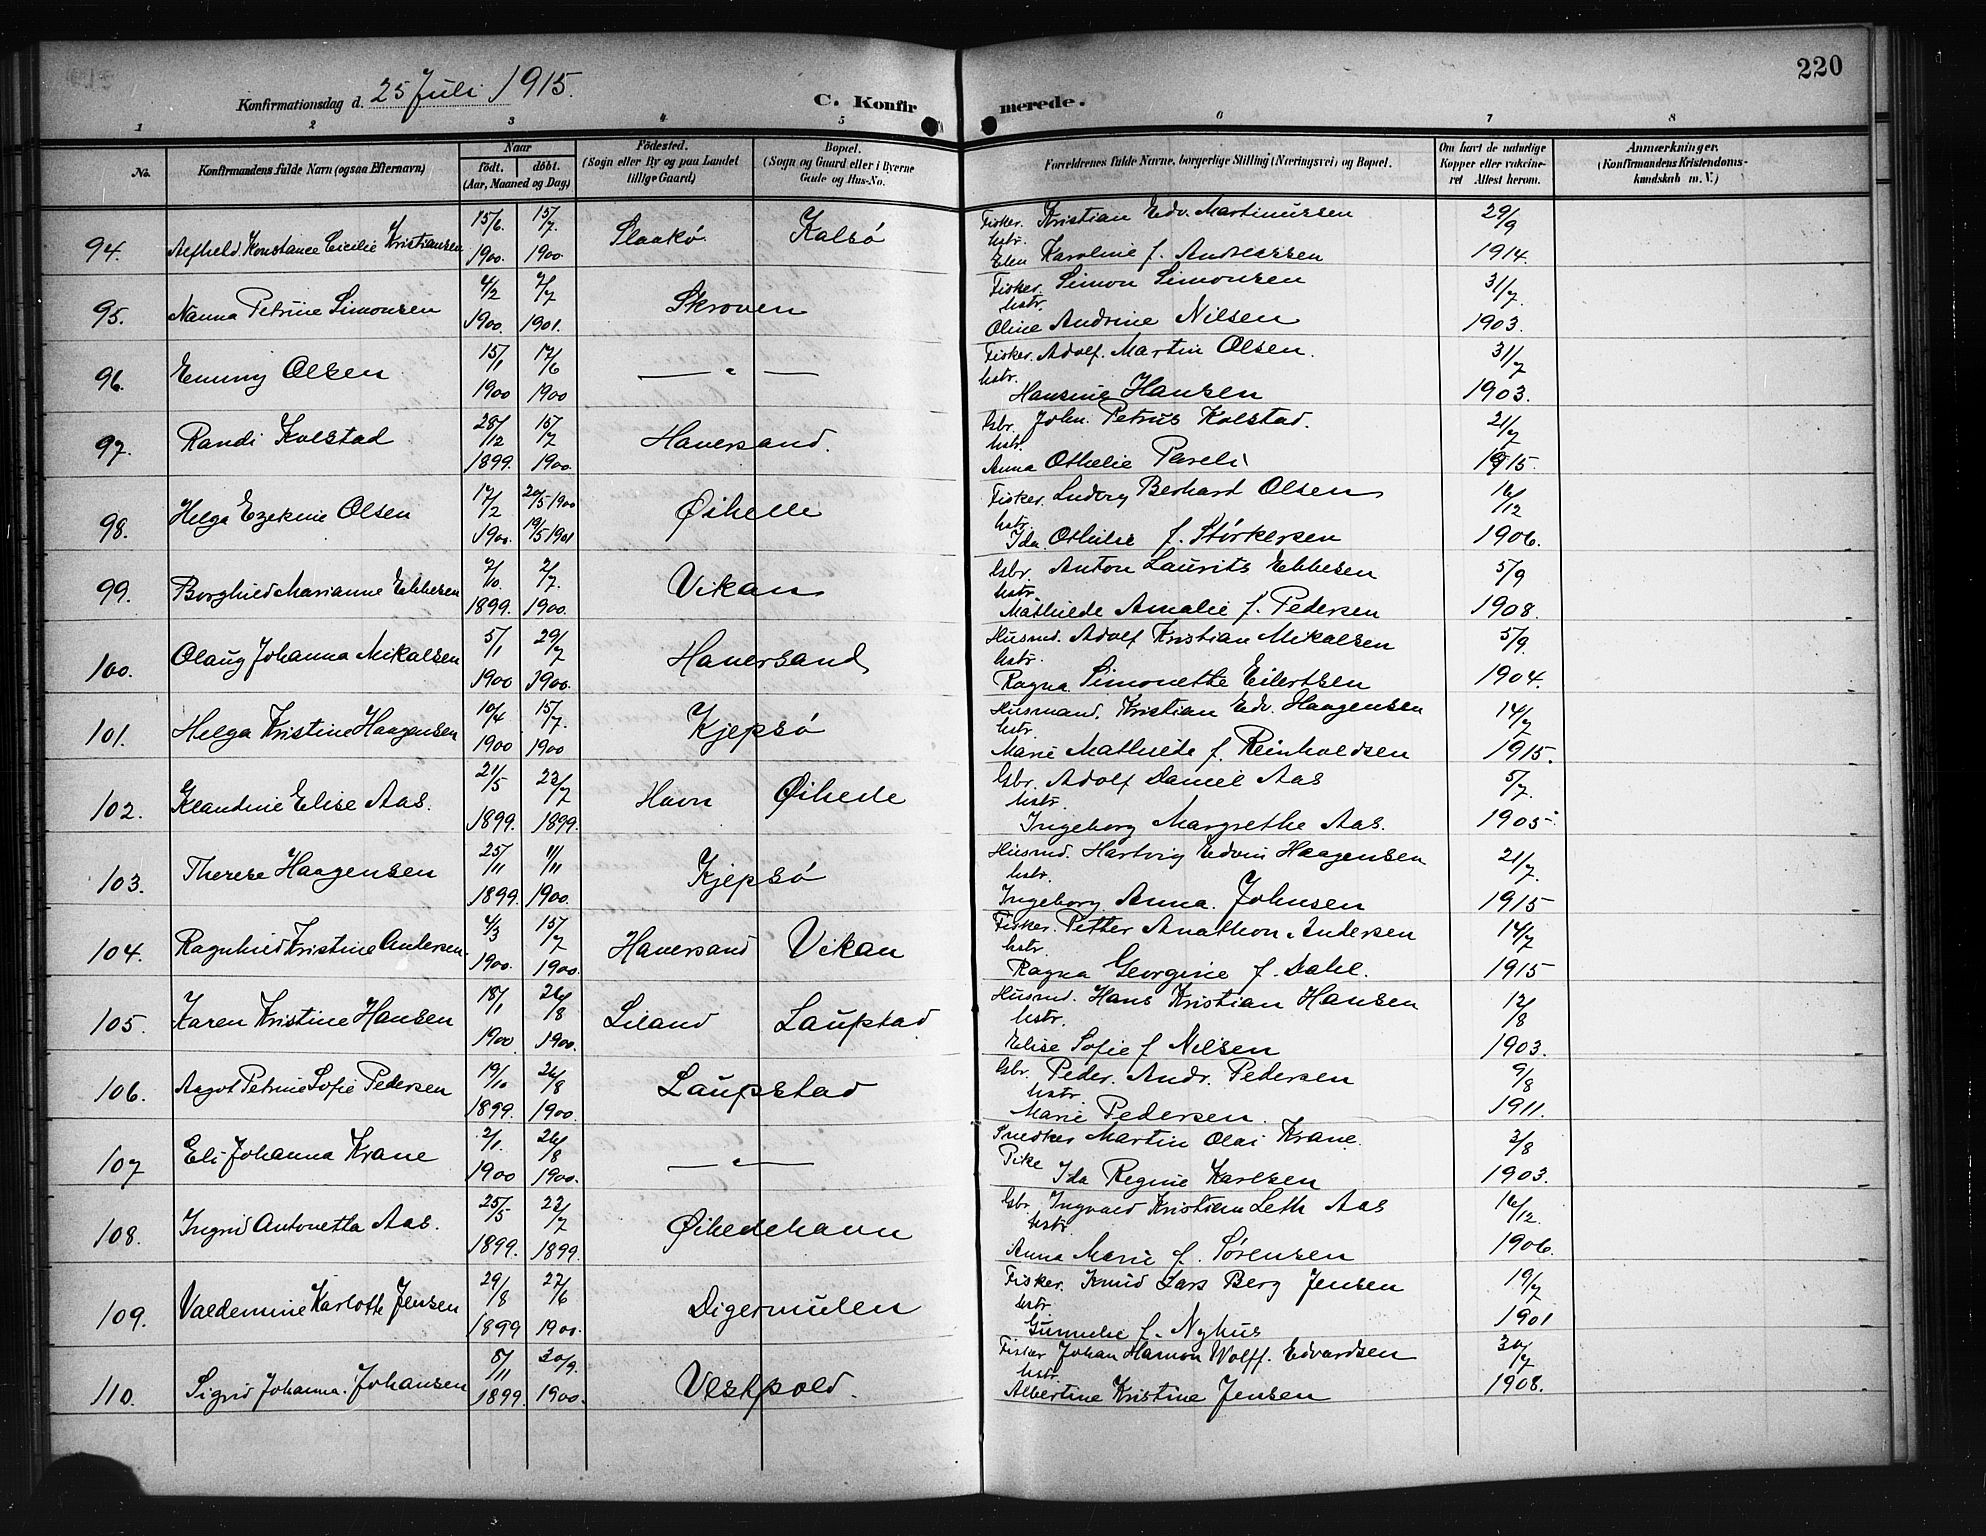 220
Konfirmationsdag d. 25 Juli 1915.
C. Konfirmerede.
1 2 3 4 5 6 7 8
No. Konfirmandens fulde Navn (ogsaa Efternavn) Naar födt. döbt. (Aar, Maaned og Dag) Födested. (Sogn eller By og paa Landet tillige Gaard) Bopæl. (Sogn og Gaard eller i Byerne Gade og Hus-No. Forældrenes fulde Navne, borgerlige Stilling (Næringsvei) og Bopæl. Om havt de naturlige Kopper eller vaccineret Attest herom. Anmærkninger. (Konfirmandens Kristendomskundskab m. V.)
94. Alfhild Konstance Cicilie Kristiansen 15/6 1900. 15/7. 1900 Kalsö Fisker. Kristian Edv. Martinussen 29/9
hstr. Elen Karoline f. Andreassen 1914.
95. Nanna Petrine Simonsen 4/2 1900. 2/7 1901. Skroven Fisker. Simon Simonsen 31/7
hstr. Oline Andrine Nilsen 1903.
96. Emmy Olsen 15/1 1900 17/6 1900 — " — Fisker. Adolf. Martin Olsen. 31/7
hstr. Hansine Hansen 1903.
97. Randi Kolstad 28/12 1899. 15/7 1900. Haversand. Gbr. Johan. Petrus Kolstad. 21/7
hstr. Anna Othelie Pareli 1915.
98. Helga Ezekine Olsen 17/2 1900. 20/5 1900 19/5 1901 Öihelle Fisker. Ludvig Berhard Olsen 16/12
hstr. Ida. Othilie f. Störkersen 1906.
99. Borghild Marianne Ebbesen 2/10 1899. 2/7. 1900. Vikan Gbr. Anton Laurits Ebbesen 5/9
hstr. Mathilde Amalie f. Pedersen 1908.
100. Olaug Johanna Mikalsen 5/1 1900 29/7 1900. Haversand Husmd. Adolf Kristian Mikalsen 5/9
hstr. Ragna Simonette Eilertsen 1904.
101. Helga Kristine Haagensen 10/4 1900 15/7. 1900 Kjepsö Husmand. Kristian Edv. Haagensen 14/7
hstr. Marie Mathilde f. Reinholdsen 1915.
102. Klaudine Elise Aas. 21/5 1899. 23/7 1899. Havn Öihelle Gbr. Adolf Daniel Aas 5/7.
hstr. Ingeborg Margrethe Aas. 1905.
103. Therese Haagensen 25/11 1899. 11/11 1900. Kjepsö Husmd. Hartvig Edvin Haagensen 21/7.
hstr. Ingeborg Anna. Johnsen 1915
104. Ragnhild Kristine Andersen. 4/3 1900. 15/7 1900. Haversand Vikan Fisker. Petter Anathon Andersen 14/7
hstr. Ragna Georgine f. Dahl. 1915
105. Karen Kristine Hansen 18/1 1900. 26/8 1900. Liland Laupstad Husmd. Hans Kristian Hansen 12/8
hstr. Elise Sofie f Nilsen 1903.
106. Aagot Petrine Sofie Pedersen 19/10 1899. 26/8 1900. Laupstad Gbr. Peder. Andr. Pedersen 9/8
hstr. Marie Pedersen. 1911.
107 Eli Johanna Krane 2/1. 1900 26/8 1900. — " — Snedker Martin Olai Krane. 3/8
Pike Ida Regine Karlsen 1903.
108. Ingrid Antonetta Aas. 25/5 1899. 23/7 1899. Öihellehavn Gbr. Ingvald Kristian Leth Aas 16/12.
hstr. Anna Marie f. Sörensen 1906.
109. Valdemine Karlotte Jensen 29/8 1899 27/6 1900. Digermulen Fisker. Knud Lars Berg Jensen 19/7
hstr. Gunnelie f. Nyhus 1901
110. Sigrid Johanna. Johansen 5/11 1899. 30/9. 1900. Vestpold. Fisker Johan Hamon Wolff. Edvardsen 30/7
hstr. Albertine Kristine Jensen 1908.